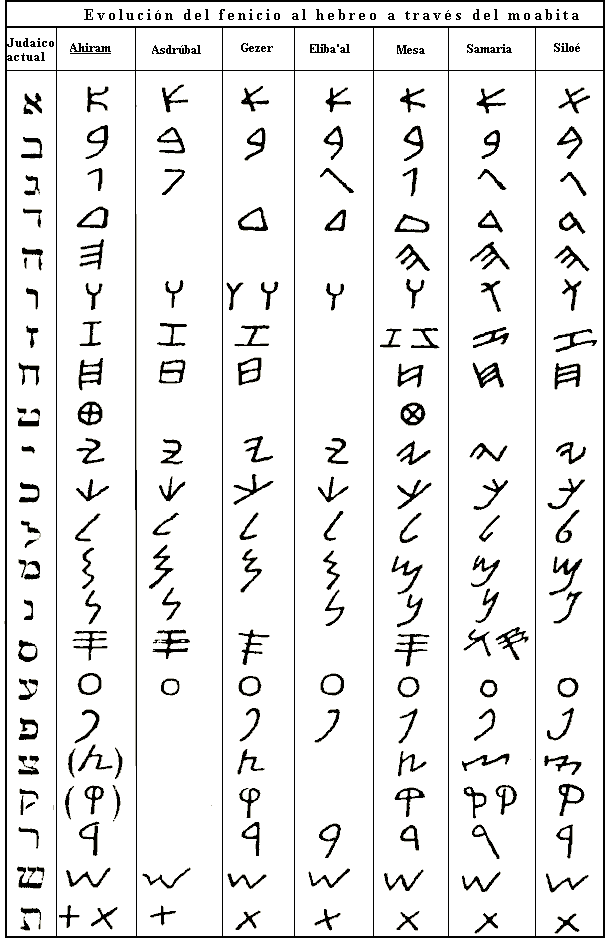 Evolución del fenicio al hebreo a través del moabita
Judaico actual Ahiram Asdrúbal Gezer Eliba'al Mesa Samaria Siloé
א 𐤀 𐤀 𐤀 𐤀 𐤀 𐤀 𐤀
ב 𐤁 𐤁 𐤁 𐤁 𐤁 𐤁 𐤁
ג 𐤂 𐤂 𐤂 𐤂 𐤂 𐤂
ד 𐤃 𐤃 𐤃 𐤃 𐤃 𐤃
ה 𐤄 𐤄 𐤄 𐤄
ו 𐤅 𐤅 𐤅 𐤅 𐤅 𐤅 𐤅 𐤅
ז 𐤆 𐤆 𐤆 𐤆 𐤆 𐤆 𐤆
ח 𐤇 𐤇 𐤇 𐤇 𐤇 𐤇
ט 𐤈 𐤈
י 𐤉 𐤉 𐤉 𐤉 𐤉 𐤉 𐤉
כ 𐤊 𐤊 𐤊 𐤊 𐤊 𐤊 𐤊
ל 𐤋 𐤋 𐤋 𐤋 𐤋 𐤋 𐤋
מ 𐤌 𐤌 𐤌 𐤌 𐤌 𐤌 𐤌
נ 𐤍 𐤍 𐤍 𐤍 𐤍 𐤍
ס 𐤎 𐤎 𐤎 𐤎 𐤎 𐤎
ע 𐤏 𐤏 𐤏 𐤏 𐤏 𐤏 𐤏
פ 𐤐 𐤐 𐤐 𐤐 𐤐 𐤐
צ (𐤑) 𐤑 𐤑 𐤑 𐤑
ק (𐤒) 𐤒 𐤒 𐤒 𐤒 𐤒
ר 𐤓 𐤓 𐤓 𐤓 𐤓 𐤓
ש 𐤔 𐤔 𐤔 𐤔 𐤔 𐤔 𐤔
ת 𐤕 𐤕 𐤕 𐤕 𐤕 𐤕 𐤕 𐤕